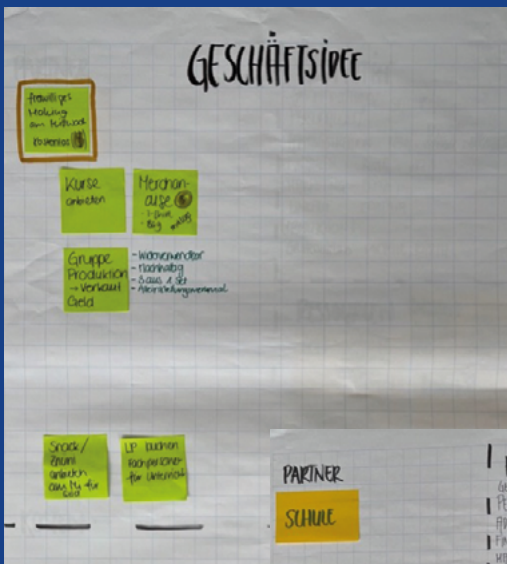 GESCHÄFTSIDEE
freiwilliges
Making
am Mittwoch
kostenlos
Kurse
anbieten
Merchan-
dise
- Bag
Gruppe
Produktion
→ Verkauf
Geld
- Wiederverwendbar
- Nachhaltig
- 3 aus 1 Set
- Alleinstellungsmerkmal
Snack/
Znüni
anbieten
am Mi für
Geld
LP buchen
Fachpersonen
für Unterricht
PARTNER
SCHULE